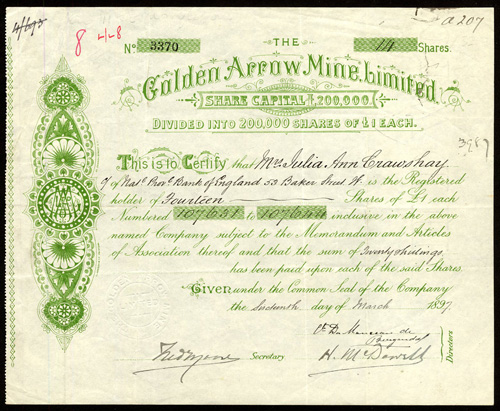 8 4/28
a 207
No 3370
14 Shares.
THE
Golden Arrow Mine, Limited.
SHARE CAPITAL £200,000.
DIVIDED INTO 200,000 SHARES OF £1 EACH.
This is to Certify that Mrs Julia Ann Crawshay
of Natl. Provl. Bank of England 53 Baker Street W is the Registered
holder of Fourteen Shares of £1 each
Numbered 107631 to 107644 inclusive in the above
named Company subject to the Memorandum and Articles
of Association thereof and that the sum of Twenty shillings
has been paid upon each of the said Shares
Given under the Common Seal of the Company
the Sixteenth day of March 1897.
Secretary
H. McDowell
Directors